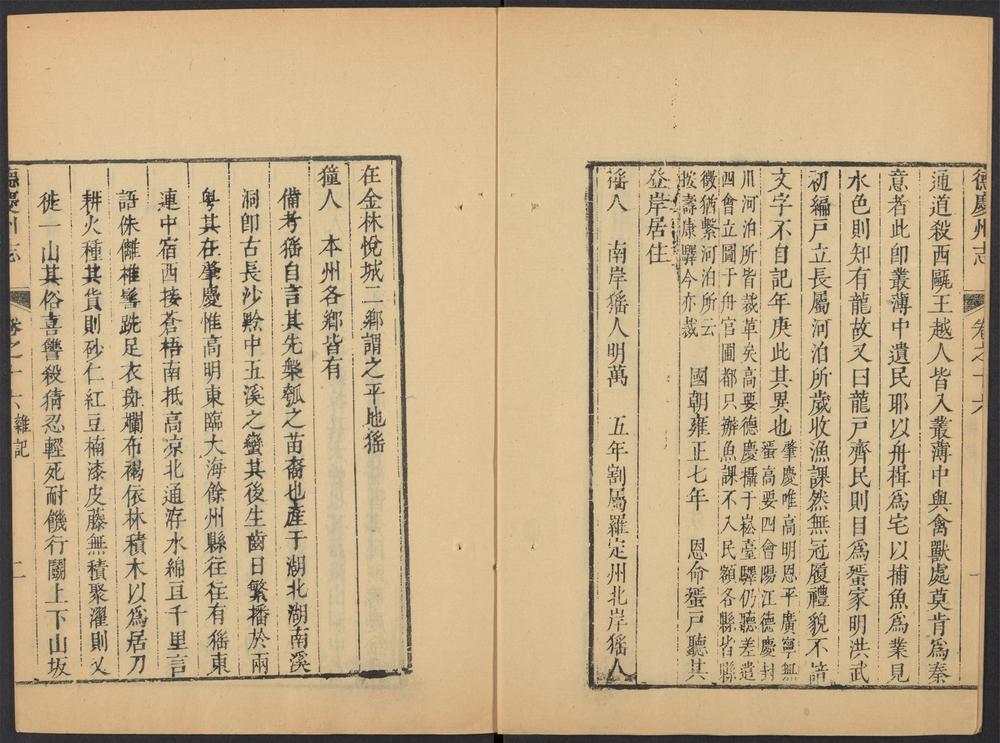 德慶州志 卷之十六
通道殺西甌王越人皆入叢薄中與禽獸處莫肯爲秦
意者此即叢薄中遺民耶以舟楫爲宅以捕魚爲業見
水色則知有龍故又曰龍戶齊民則目爲蜑家明洪武
初編戶立長屬河泊所歲收漁課然無冠履禮貌不諳
文字不自記年庚此其異也
肇慶唯高明恩平廣寧無
蜑高要四會陽江德慶封
川河泊所皆裁革矣高要德慶攝于崧臺驛仍聽差遣
四會立圖于舟官圃都只辦魚課不入民額各縣皆縣
徵猶繫河泊所云
按壽康驛今亦裁
國朝雍正七年 恩命蜑戶聽其
登岸居住
猺人 南岸猺人明萬 五年割屬羅定州北岸猺人
在金林悅城二鄉謂之平地猺
獞人 本州各鄉皆有
備考猺自言其先槃瓠之苗裔也產于湖北湖南溪
洞卽古長沙黔中五溪之蠻其後生齒日繁播於兩
粤其在肇慶惟高明東臨大海餘州縣往往有猺東
連中宿西接蒼梧南抵高凉北通存水綿亘千里言
語侏離椎髻跣足衣斑斕布褐依林積木以爲居刀
耕火種其貨則砂仁紅豆楠漆皮藤無積聚濯則又
徙一山其俗喜讐殺猜忍輕死耐饑行鬬上下山坂
德慶州志 卷之十六雜記 二